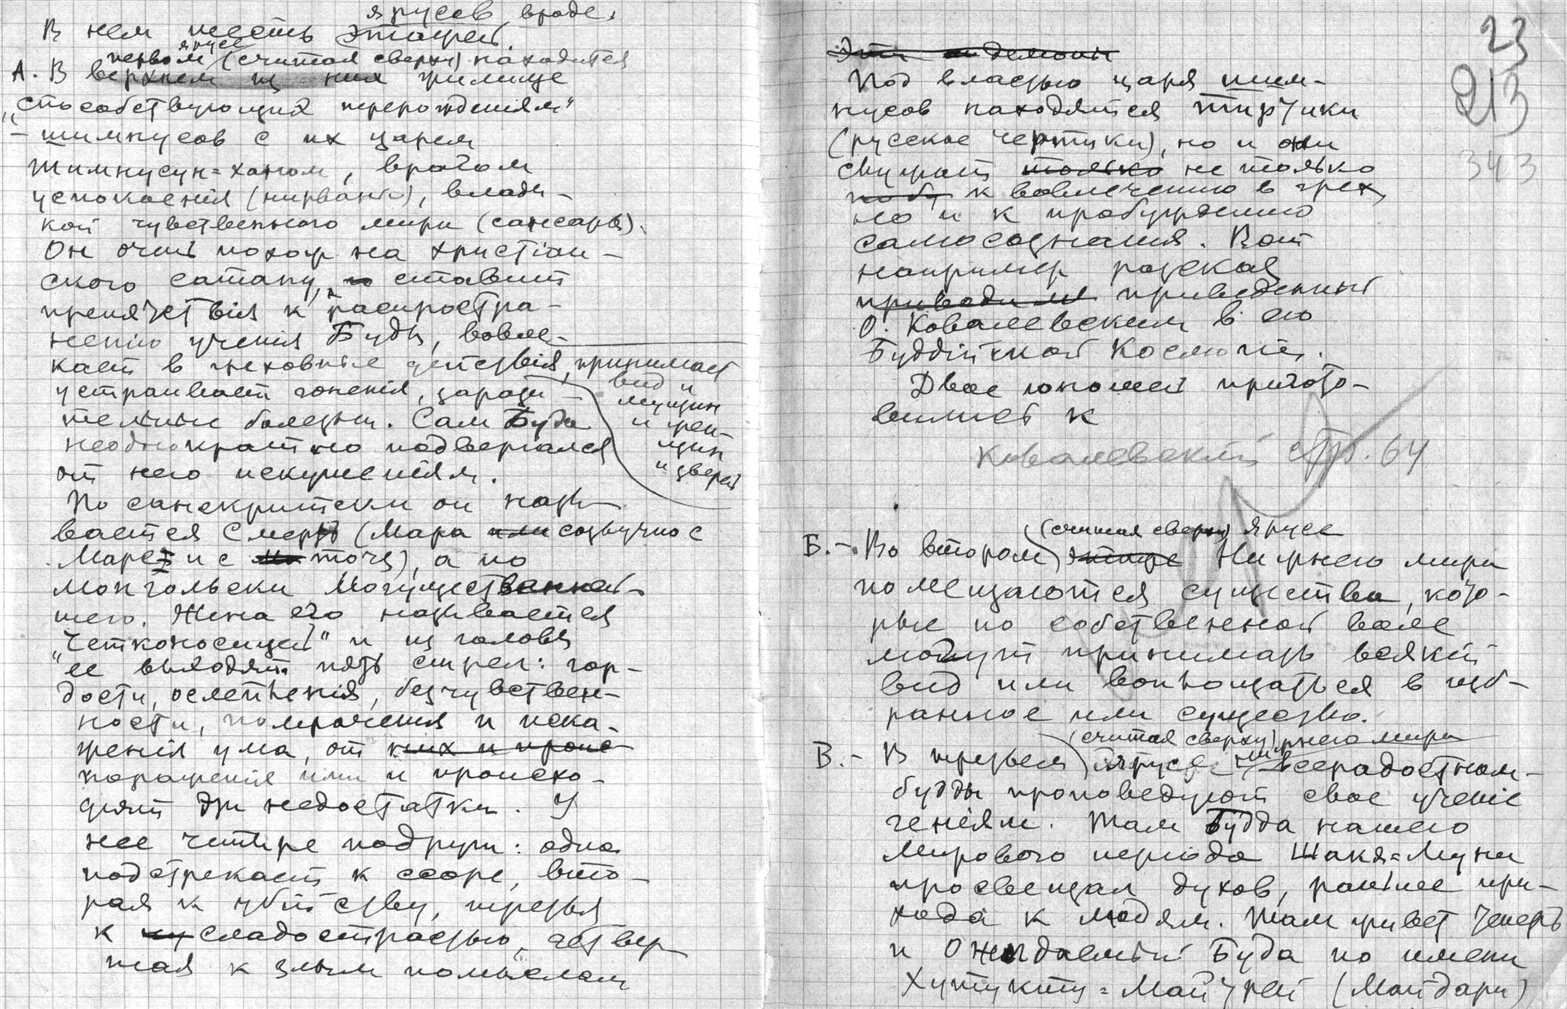 ярусов вроде
В нем шесть этажей.
первом ярусе (считая сверху) находятся
А. В верхнем из них жилище
„способствующия перерождениям“
– шимнусов с их царем
Шимнусун=ханом, врагом
успокоения (нирваны), влады–
кой чувственного мира (сансары).
Он очень похож на христіан–
ского сатану, ставит
препятствія к распростра–
ненію ученія Будды, вовле–
кает в греховные действія, принимает
вид и
мущин
и жен–
щин
и зверей
устраивает гоненія, зарази–
тельные болезни. Сам Буда
неоднократно подвергался
от него искушеніям.
По санскритски он назы–
вается Смерть (Мара или созвучно с
Марет и с точу), а по
монгольски Могущественней–
шего. Жена его называется
„Четконосицей“ и из головы
ее выходят пять стрел: гор–
дости, ослепленія, безчувствен–
ности, помрачения и иска–
женія ума, от них и прои
поражения ими и происхо–
дят эти недостатки. У
нее четыре подруги: одна
подстрекает к ссоре, вто–
рая к убійству, третья
к сладострастью, четвер
тая к злым помыслам
23
213
343
Эти демоны
Под властью царя шим–
нусов находятся тирчики
(русское чертики), но и они
служат только не только
к вовлечению в грех,
но и к пробуждению
самосознания. Вот
например разсказ
приводимый приведенный
О. Ковалевским в его
Буддійской Космогіи.
Двое юношей пригото–
вились к
Ковалевский стр. 64
(считая сверху) ярусе
Б. – Во втором этаже Нижнего мира
помещаются существа, кото–
рые по собственной воле
могут принимать всякій
вид или воплощаться в изб–
ранное ими существо.
(считая сверху) жнего мира
В. – В третьем ярусе Ни всерадостном –
будды проповедуют свое ученіе
геніям. Там Будда нашего
мирового періода Шакя=Муни
просвещал духов, раньше при–
хода к людям. Там живет теперь
и Ожидаемый Буда по имени
Хутукту=Майтрей (Майдари)